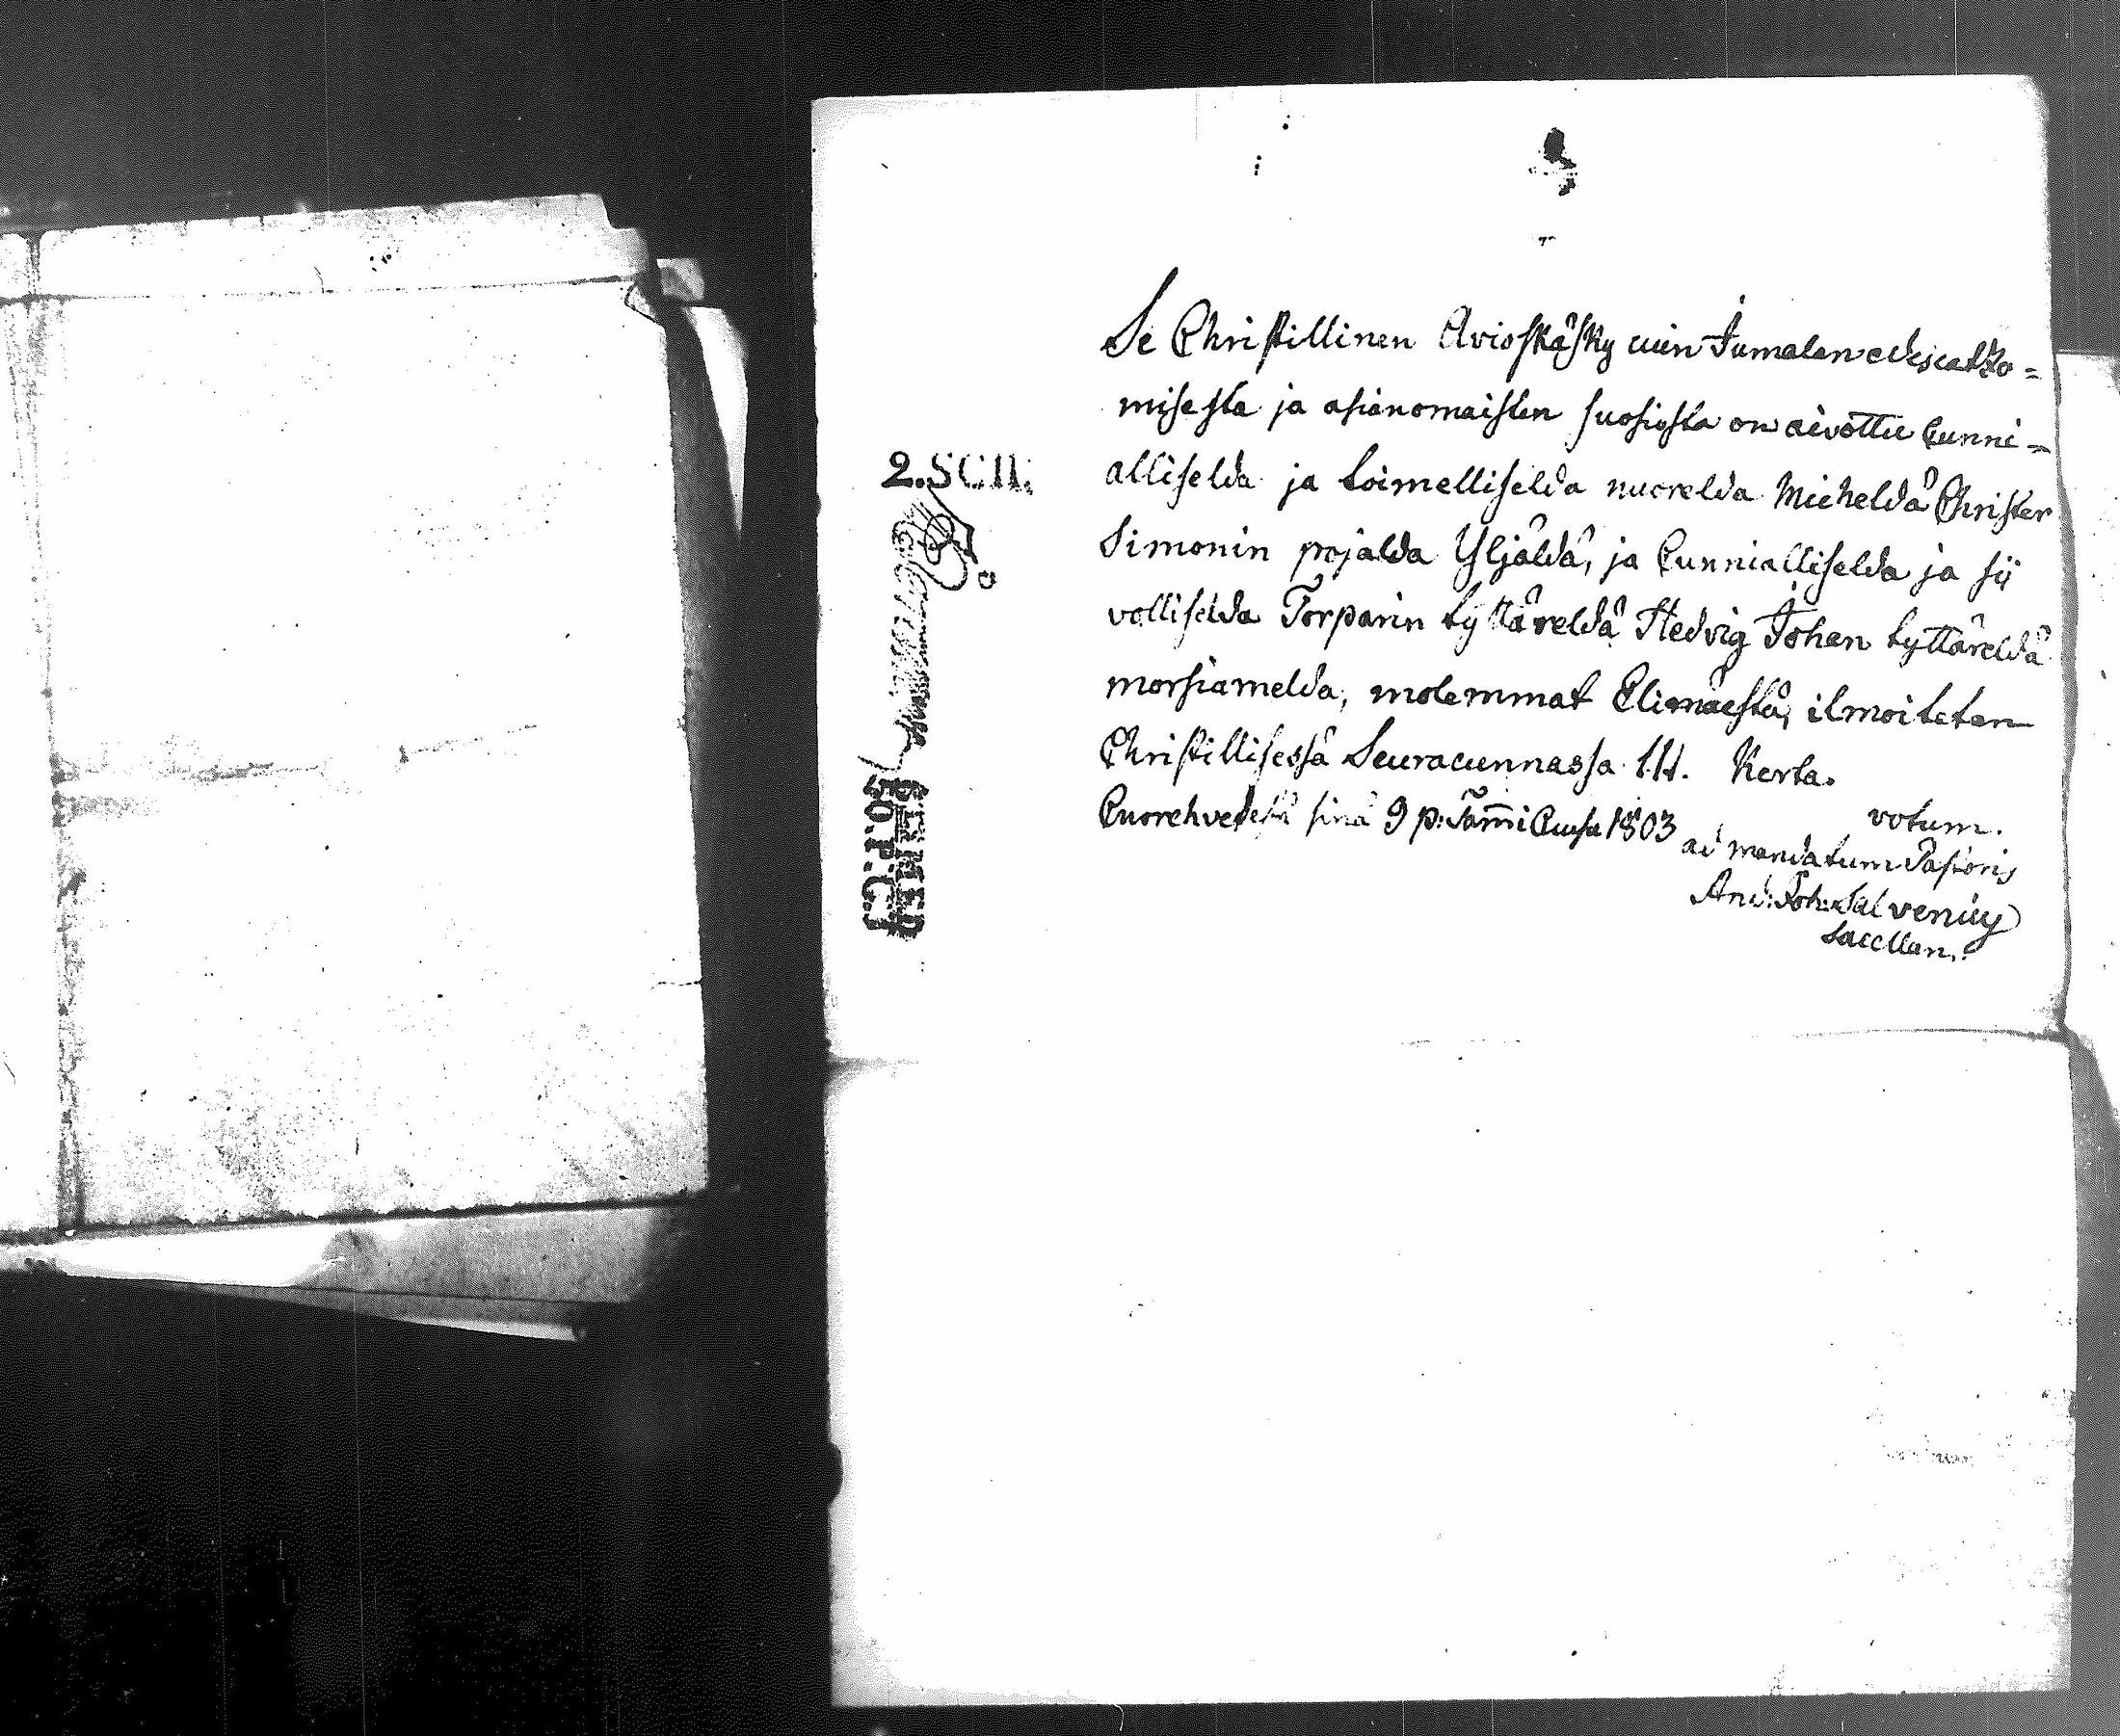 2. SCH.
Se Christillinen Avioskäsky cuin Jumalan edescatzo=
misesta ja asianomaisten suosiosta on aivottu Cunni=
alliselda ja toimelliselda nuorelda Micheldä Christer
Simonin pojalda Yljäldä, ja Cunnialliselda ja sii
volliselda Torparin tyttäreldä Hedvig Johan tyttäreldä
morsiamelda, molemmat Elimäestä, ilmoitetan
Christillisessä Seuracunnassa 1.H. Kerta.
Cuorehvedesä sinä 9 p: Tam̄i Cuusa 1803
votum.
ad mandatum Pastoris
And: Joh: Salvenius
Sacellan.